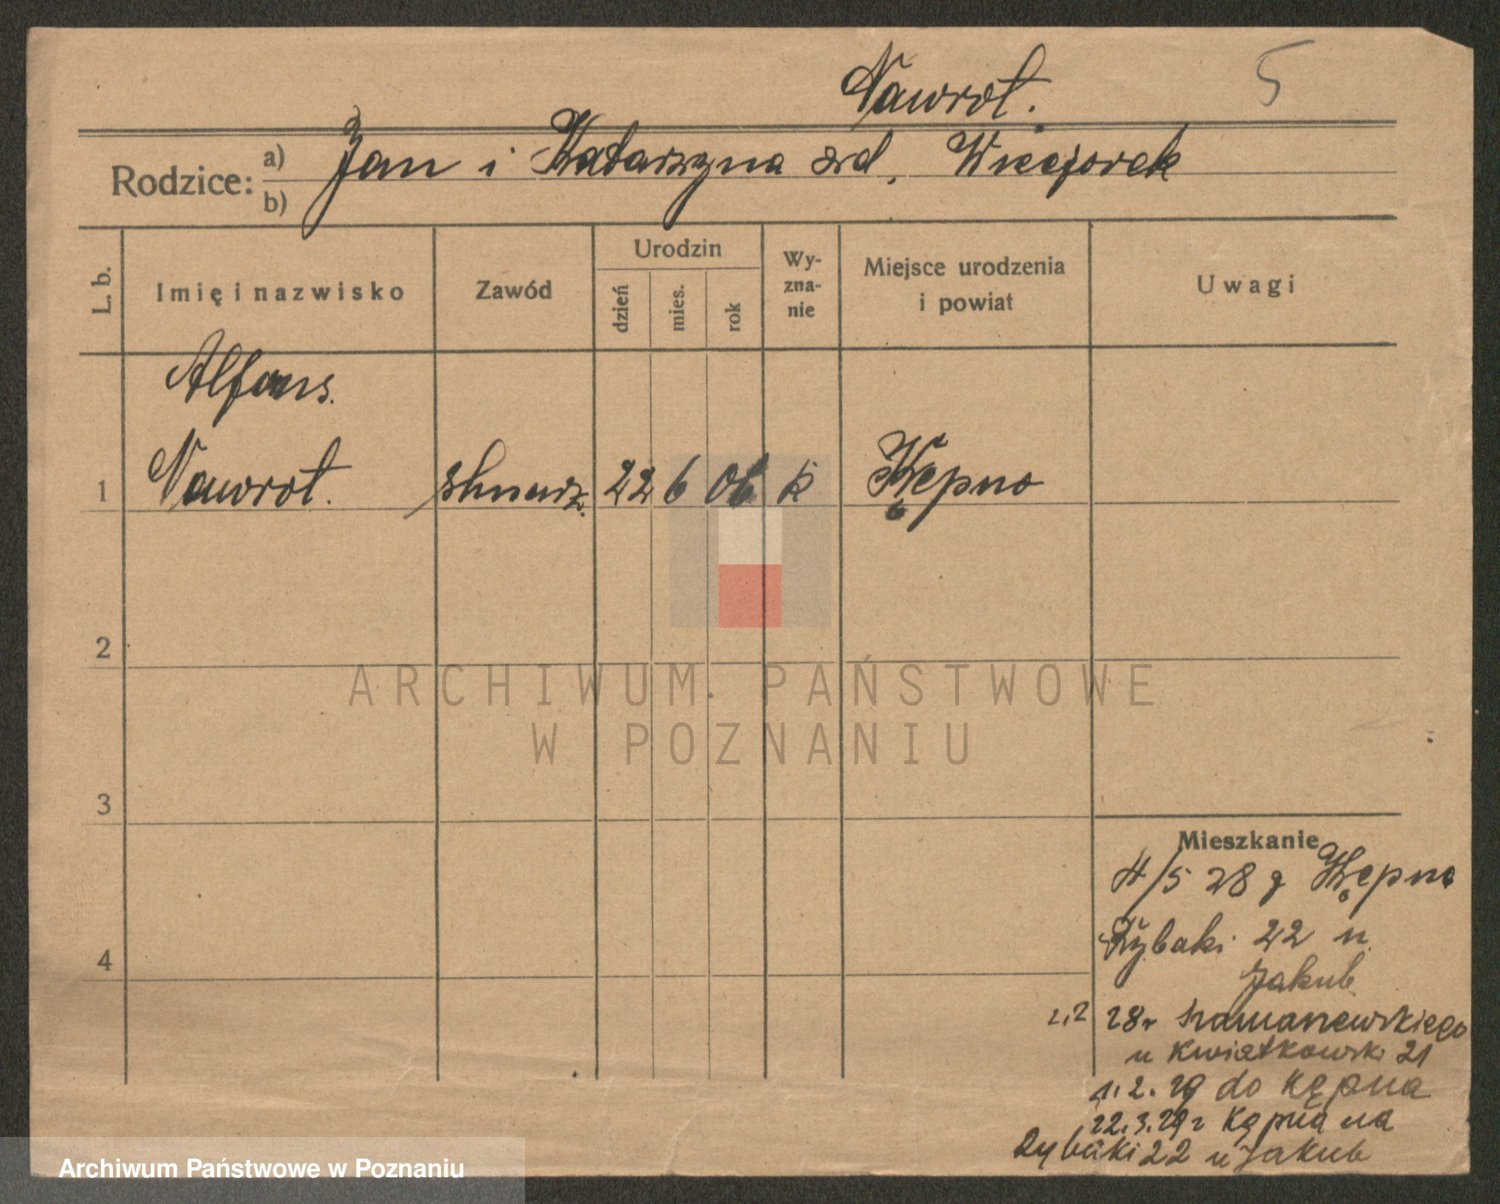 Nawrot.
5
Rodzice:
a)
b)
Jan i Katarzyna zrd. Wieczorek
L. b.
Imię i nazwisko
Zawód
Urodzin
dzień
mies.
rok
Wy-
zna-
nie
Miejsce urodzenia
i powiat
Uwagi
Alfons.
1 Nawrot. 22 6 06 k Kępno
2
3
4
ARCHIWUM PAŃSTWOWE
W POZNANIU
Mieszkanie
4/5 28 z Kępna
Rybaki 22 u
Jakub
28r Szamarzewskiego
u Kwiatkowski 21
1.2.29 do Kępna
22.3.29 z Kępna na
Rybaki 22 u Jakub
Archiwum Państwowe w Poznaniu